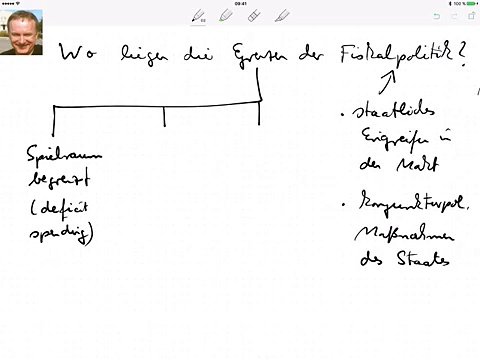 09:41
100 %
Wo liegen die Grenzen der Fiskalpolitik?
Spielraum
begrenzt
(deficit
spending)
• staatliches
Eingreifen in
den Markt
• Konjunkturpol.
Maßnahmen
des Staates